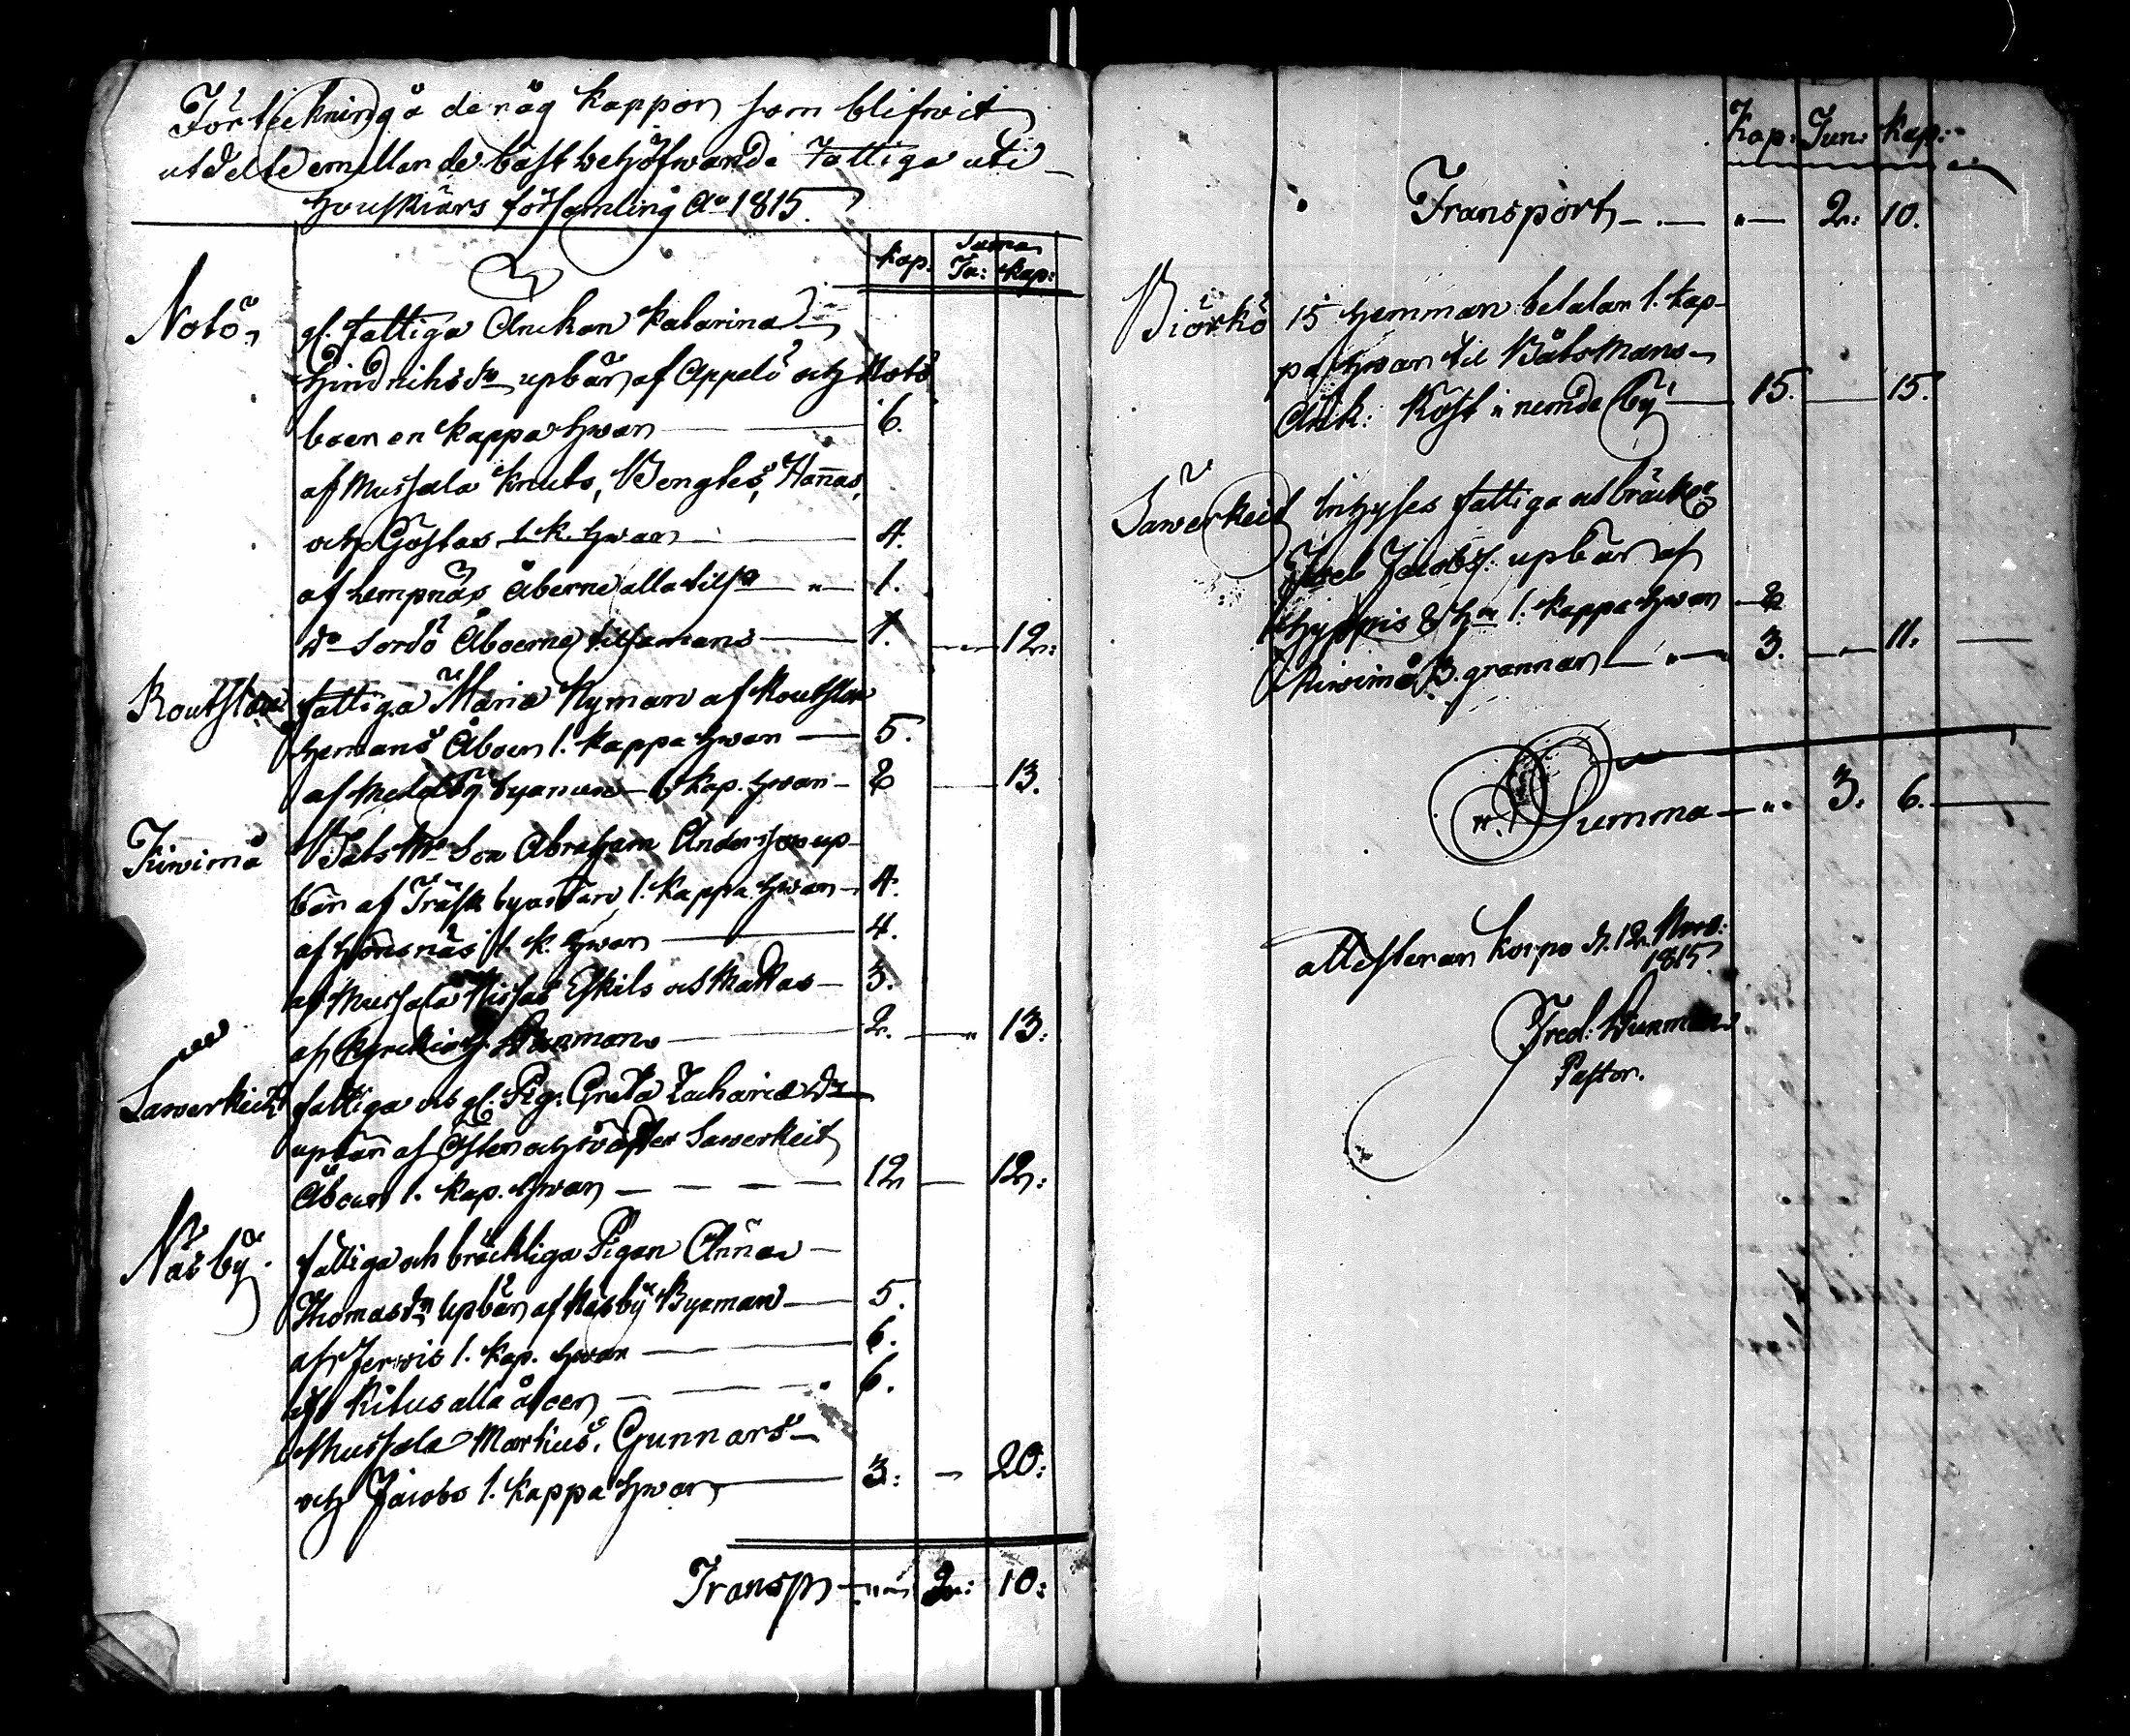 Förteckning å de råg kappor som blifwit
utdelte emellan de bäst behöfwande Fattiga uti
Houtskiärs församling Ao 1815.
Kap. Suma Tu: Kap:
Notö gl. fattiga Änckan Katarina
Hindrichs dr upbär af Appelö och Notö
boer en kappa hwar 6.
af Mussala Knuts, Bengtes, Hannas,
och Göstas 1. k. hwar 4.
af Lempnäs Åberne alla tilsa 1.
do Sordö Åboerne tilsamans 1. 12:
Routslax fattiga Maria Nyman af Routslax
hemans Åboer 1. kappa hwar 5.
af Medelby byamen 1. kap. hwar 8 13.
Kiwimå Båts Ms Son Abraham Andersson up-
bär af Träsk byamän 1. kappa hwar 4.
af Hömsnäs 1. k. hwar 4.
af Mussala Nissas Eskils och Mattas 3.
af 2. 13:
Sawerkeit fattiga och gl. Pig. Greta Zacharia dr
upbär af Öster och wäster Sawerkeit
Åboer 1. kap. hwar 12 12:
Näsby. fattiga och bräckliga Pigan Anna
Thomas dr upbär af Näsby Byamän 5.
af Jerwis 1. kap. hwar 6.
af Kitus alla åboer 6.
Mussala Martins, Gunnars
och Jacobs 1. kappa hwar 3: 20:
Transp 2: 10:
Kap: Tun: Kap:
Transport 2: 10.
Biörkö 15 hemman betalar 1. kap-
pa hwar til Båtsmans
Änk: Kost i nemde by 15. 15.
Sawerkeit inhyses fattiga och bräck
Jacobs: upbär af
Hyppis 8 hn 1. kappa hwar 8
Kiwimå 3. grannar 3. 11.
Summa 3. 6.
attesterar Korpo d. 12 Nov:
1815.
Fred:
Pastor.